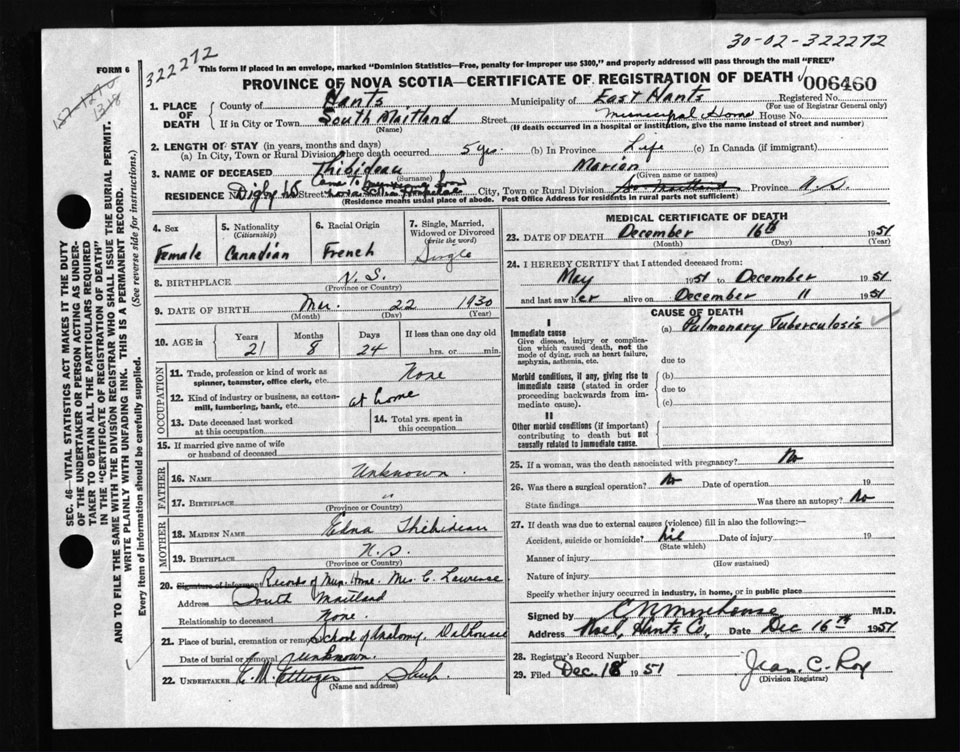 30-02-322272
322272
FORM 6
This form if placed in an envelope, marked "Dominion Statistics—Free, penalty for improper use $300," and properly addressed will pass through the mail "FREE"
PROVINCE OF NOVA SCOTIA—CERTIFICATE OF REGISTRATION OF DEATH
006460
SEC. 46—VITAL STATISTICS ACT MAKES IT THE DUTY
OF THE UNDERTAKER OR PERSON ACTING AS UNDER-
TAKER TO OBTAIN ALL THE PARTICULARS REQUIRED
IN THE "CERTIFICATE OF REGISTRATION OF DEATH"
AND TO FILE THE SAME WITH THE DIVISION REGISTRAR WHO SHALL ISSUE THE BURIAL PERMIT.
WRITE PLAINLY WITH UNFADING INK. THIS IS A PERMANENT RECORD.
Every item of information should be carefully supplied. (See reverse side for instructions.)
1. PLACE OF DEATH
County of Hants Municipality of East Hants Registered No.
(For use of Registrar General only)
If in City or Town South Maitland Street Municipal Home House No.
(Name) (If death occurred in a hospital or institution, give the name instead of street and number)
2. LENGTH OF STAY (in years, months and days)
(a) In City, Town or Rural Division where death occurred 5 yrs. (b) In Province Life (c) In Canada (if immigrant)
3. NAME OF DECEASED Thibideau Marion
(Surname) (Given name or names)
RESIDENCE No. Digby Street City, Town or Rural Division So. Maitland Province N.S.
(Residence means usual place of abode. Post Office Address for residents in rural parts not sufficient)
4. Sex 5. Nationality (Citizenship) 6. Racial Origin 7. Single, Married, Widowed or Divorced (write the word)
Female Canadian French Single
8. BIRTHPLACE N.S.
(Province or Country)
9. DATE OF BIRTH Mar. 22 1930
(Month) (Day) (Year)
10. AGE in Years Months Days If less than one day old
21 8 24 hrs. or min.
OCCUPATION
11. Trade, profession or kind of work as spinner, teamster, office clerk, etc. None
12. Kind of industry or business, as cotton-mill, lumbering, bank, etc. at home
13. Date deceased last worked at this occupation
14. Total yrs. spent in this occupation
15. If married give name of wife or husband of deceased
FATHER
16. NAME Unknown.
17. BIRTHPLACE "
(Province or Country)
MOTHER
18. MAIDEN NAME Edna Thibideau
19. BIRTHPLACE N.S.
(Province or Country)
20. Signature of informant Records of Mun. Home. Mrs. C. Lawrence
Address South Maitland
Relationship to deceased None.
21. Place of burial, cremation or removal School of Anatomy, Dalhousie
Date of burial or removal Unknown.
22. UNDERTAKER E. M. Ettinger
(Name and address)
MEDICAL CERTIFICATE OF DEATH
23. DATE OF DEATH December 16th 1951
(Month) (Day) (Year)
24. I HEREBY CERTIFY that I attended deceased from:
May 1951 to December 1951
and last saw her alive on December 11 1951
CAUSE OF DEATH
I
Immediate cause (a) Pulmonary Tuberculosis
Give disease, injury or complication which caused death, not the mode of dying, such as heart failure, asphyxia, asthenia, etc.
due to
Morbid conditions, if any, giving rise to immediate cause (stated in order proceeding backwards from immediate cause).
(b)
due to
(c)
II
Other morbid conditions (if important) contributing to death but not causally related to immediate cause.
25. If a woman, was the death associated with pregnancy? No
26. Was there a surgical operation? No Date of operation 19
State findings Was there an autopsy? No
27. If death was due to external causes (violence) fill in also the following:—
Accident, suicide or homicide? nil Date of injury 19
(State which)
Manner of injury
(How sustained)
Nature of injury
Specify whether injury occurred in industry, in home, or in public place
Signed by C N Morehouse M.D.
Address Noel, Hants Co, Date Dec 16th 1951
28. Registrar's Record Number
29. Filed Dec. 18 1951 Jean. C. Roy
(Division Registrar)